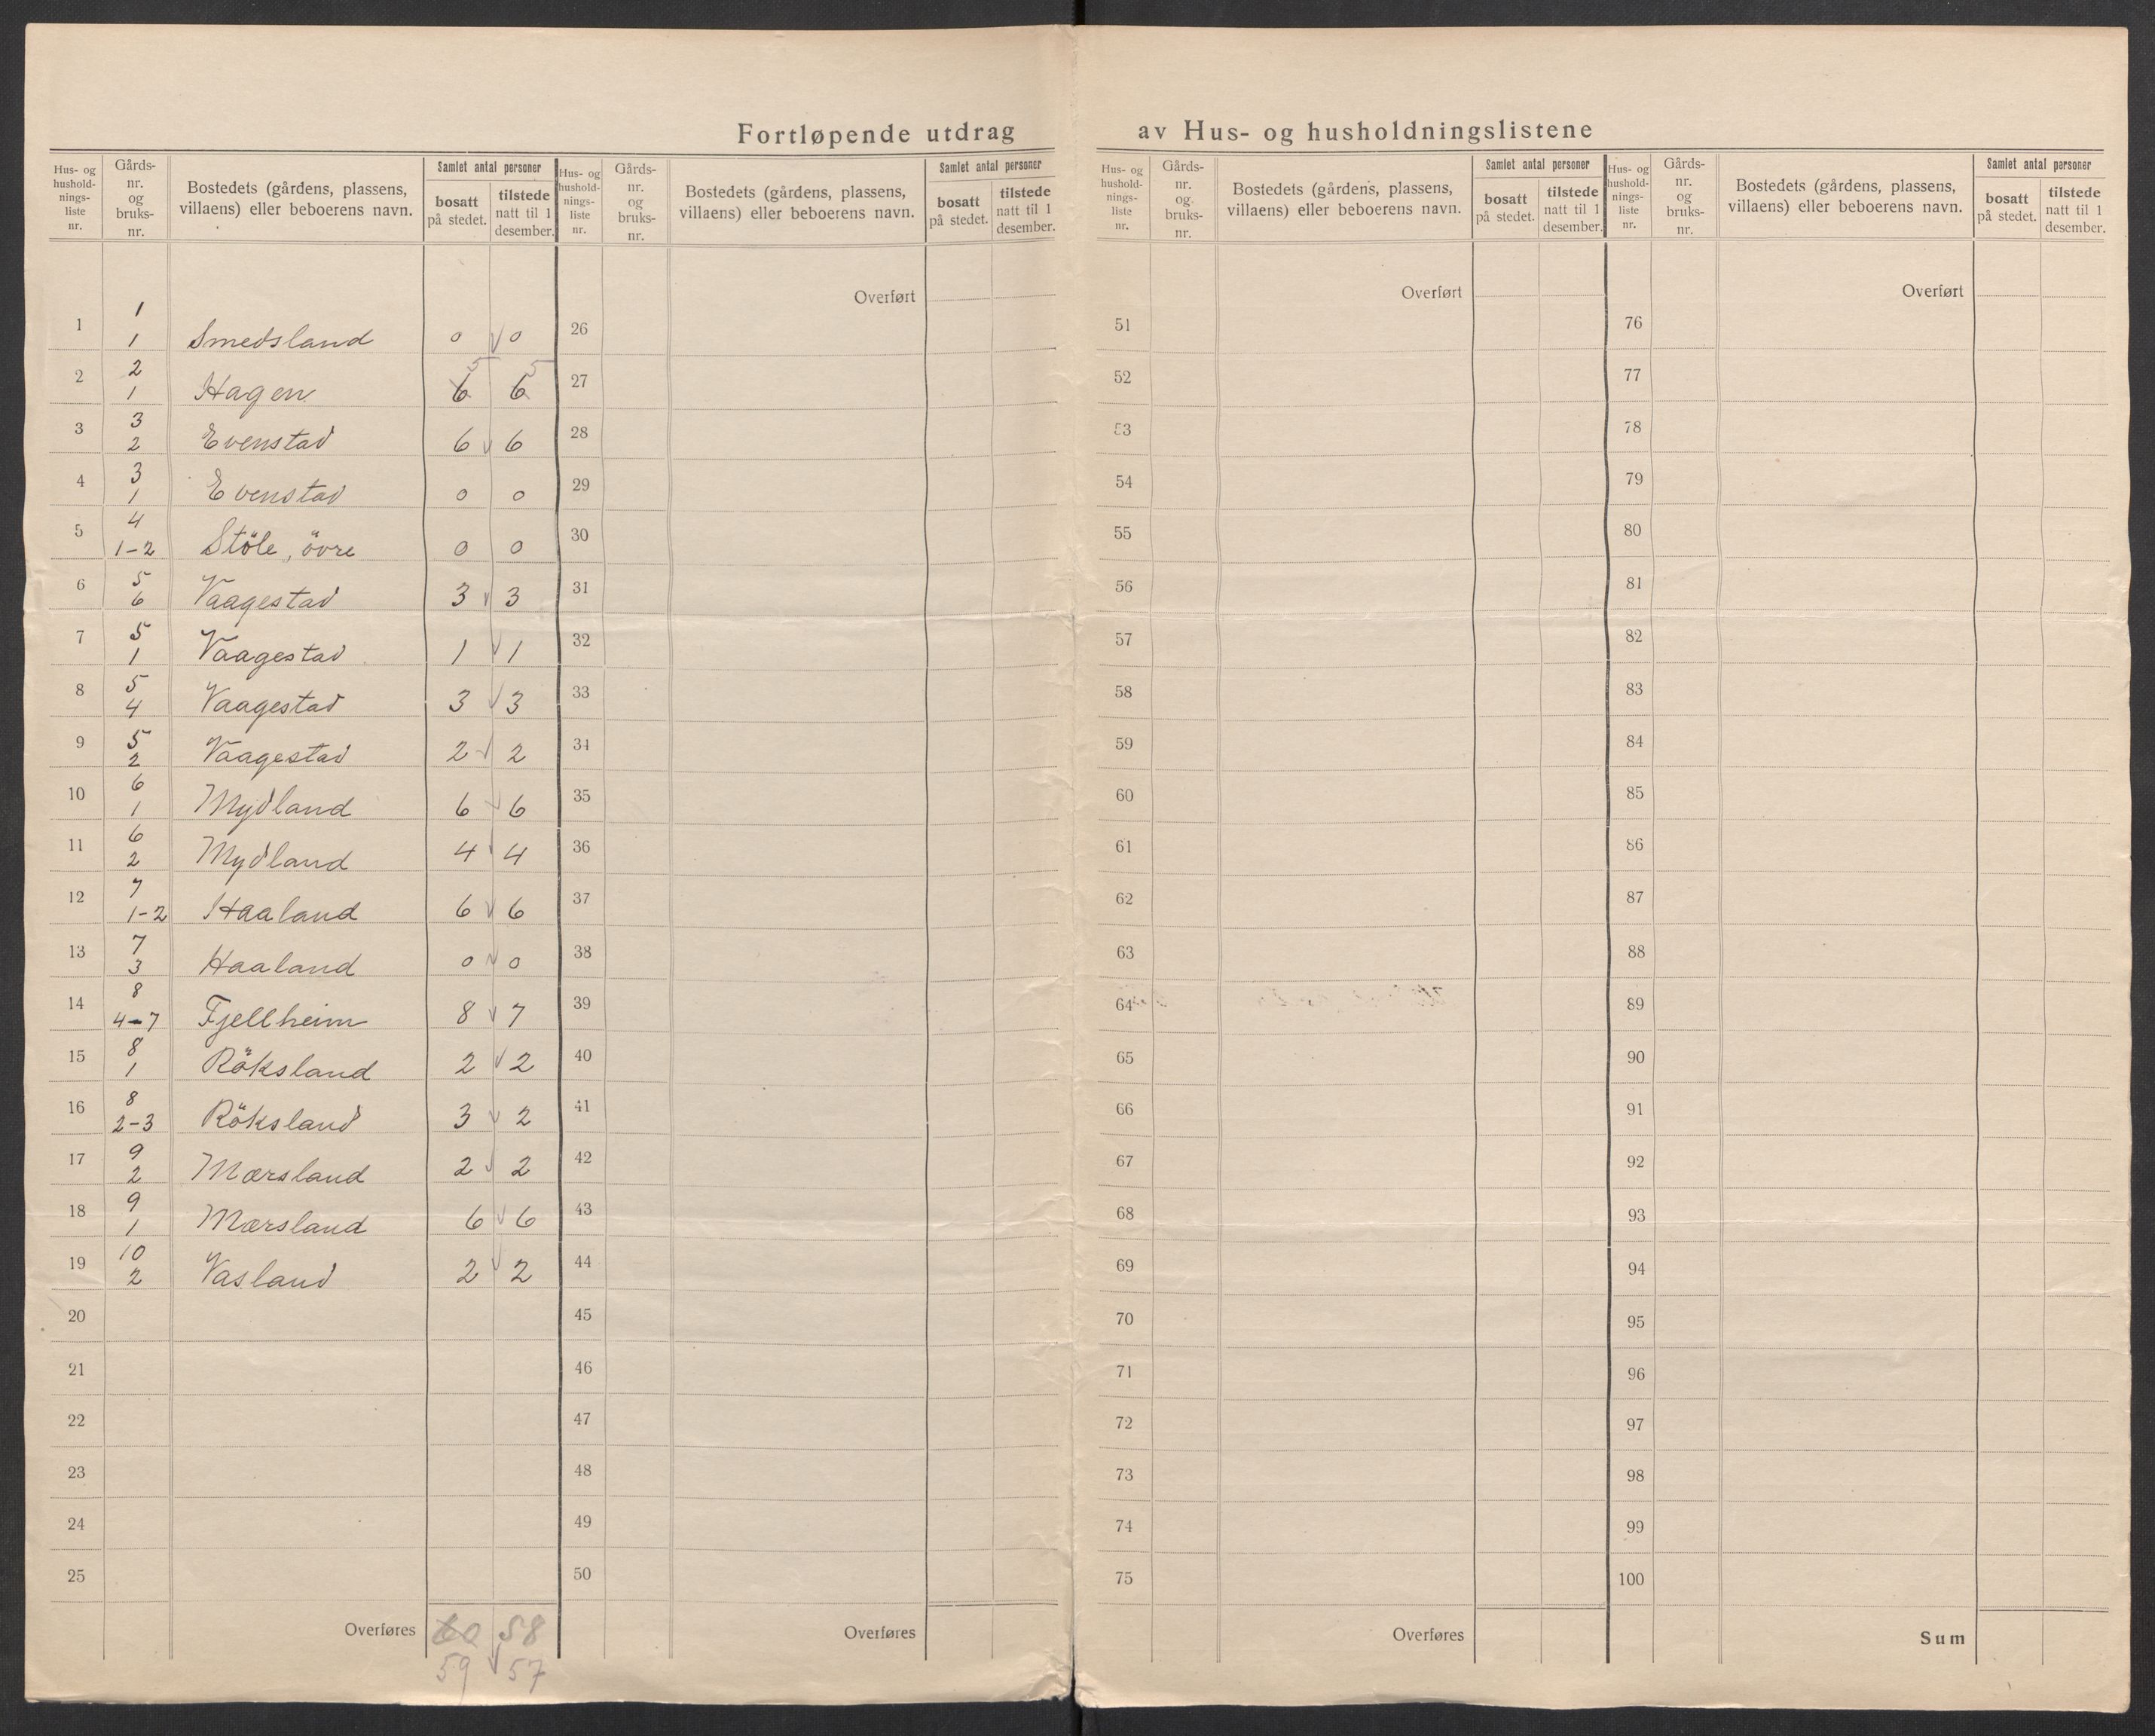 Fortløpende utdrag av Hus- og husholdningslistene
Hus- og hushold-nings-liste nr. | Gårds-nr. og bruks-nr. | Bostedets (gårdens, plassens, villaens) eller beboerens navn. | Samlet antal personer | bosatt på stedet. | tilstede natt til 1 desember.
Hus- og hushold-nings-liste nr. | Gårds-nr. og bruks-nr. | Bostedets (gårdens, plassens, villaens) eller beboerens navn. | Samlet antal personer | bosatt på stedet. | tilstede natt til 1 desember.
Hus- og hushold-nings-liste nr. | Gårds-nr. og bruks-nr. | Bostedets (gårdens, plassens, villaens) eller beboerens navn. | Samlet antal personer | bosatt på stedet. | tilstede natt til 1 desember.
Hus- og hushold-nings-liste nr. | Gårds-nr. og bruks-nr. | Bostedets (gårdens, plassens, villaens) eller beboerens navn. | Samlet antal personer | bosatt på stedet. | tilstede natt til 1 desember.
Overført Overført Overført
1 1 1 Smedsland 0 0 26 51 76
2 2 1 Hagen 6 5 6 5 27 52 77
3 3 2 Evenstad 6 6 28 53 78
4 3 1 Evenstad 0 0 29 54 79
5 4 1-2 Stöle, övre 0 0 30 55 80
6 5 6 Vaagestad 3 3 31 56 81
7 5 1 Vaagestad 1 1 32 57 82
8 5 4 Vaagestad 3 3 33 58 83
9 5 2 Vaagestad 2 2 34 59 84
10 6 1 Mydland 6 6 35 60 85
11 6 2 Mydland 4 4 36 61 86
12 7 1-2 Haaland 6 6 37 62 87
13 7 3 Haaland 0 0 38 63 88
14 8 4-7 Fjellheim 8 7 39 64 89
15 8 1 Röksland 2 2 40 65 90
16 8 2-3 Röksland 3 2 41 66 91
17 9 2 Mærsland 2 2 42 67 92
18 9 1 Mærsland 6 6 43 68 93
19 10 2 Vasland 2 2 44 69 94
20 45 70 95
21 46 71 96
22 47 72 97
23 48 73 98
24 49 74 99
25 50 75 100
Overføres 60 58 Overføres Overføres Sum
59 57